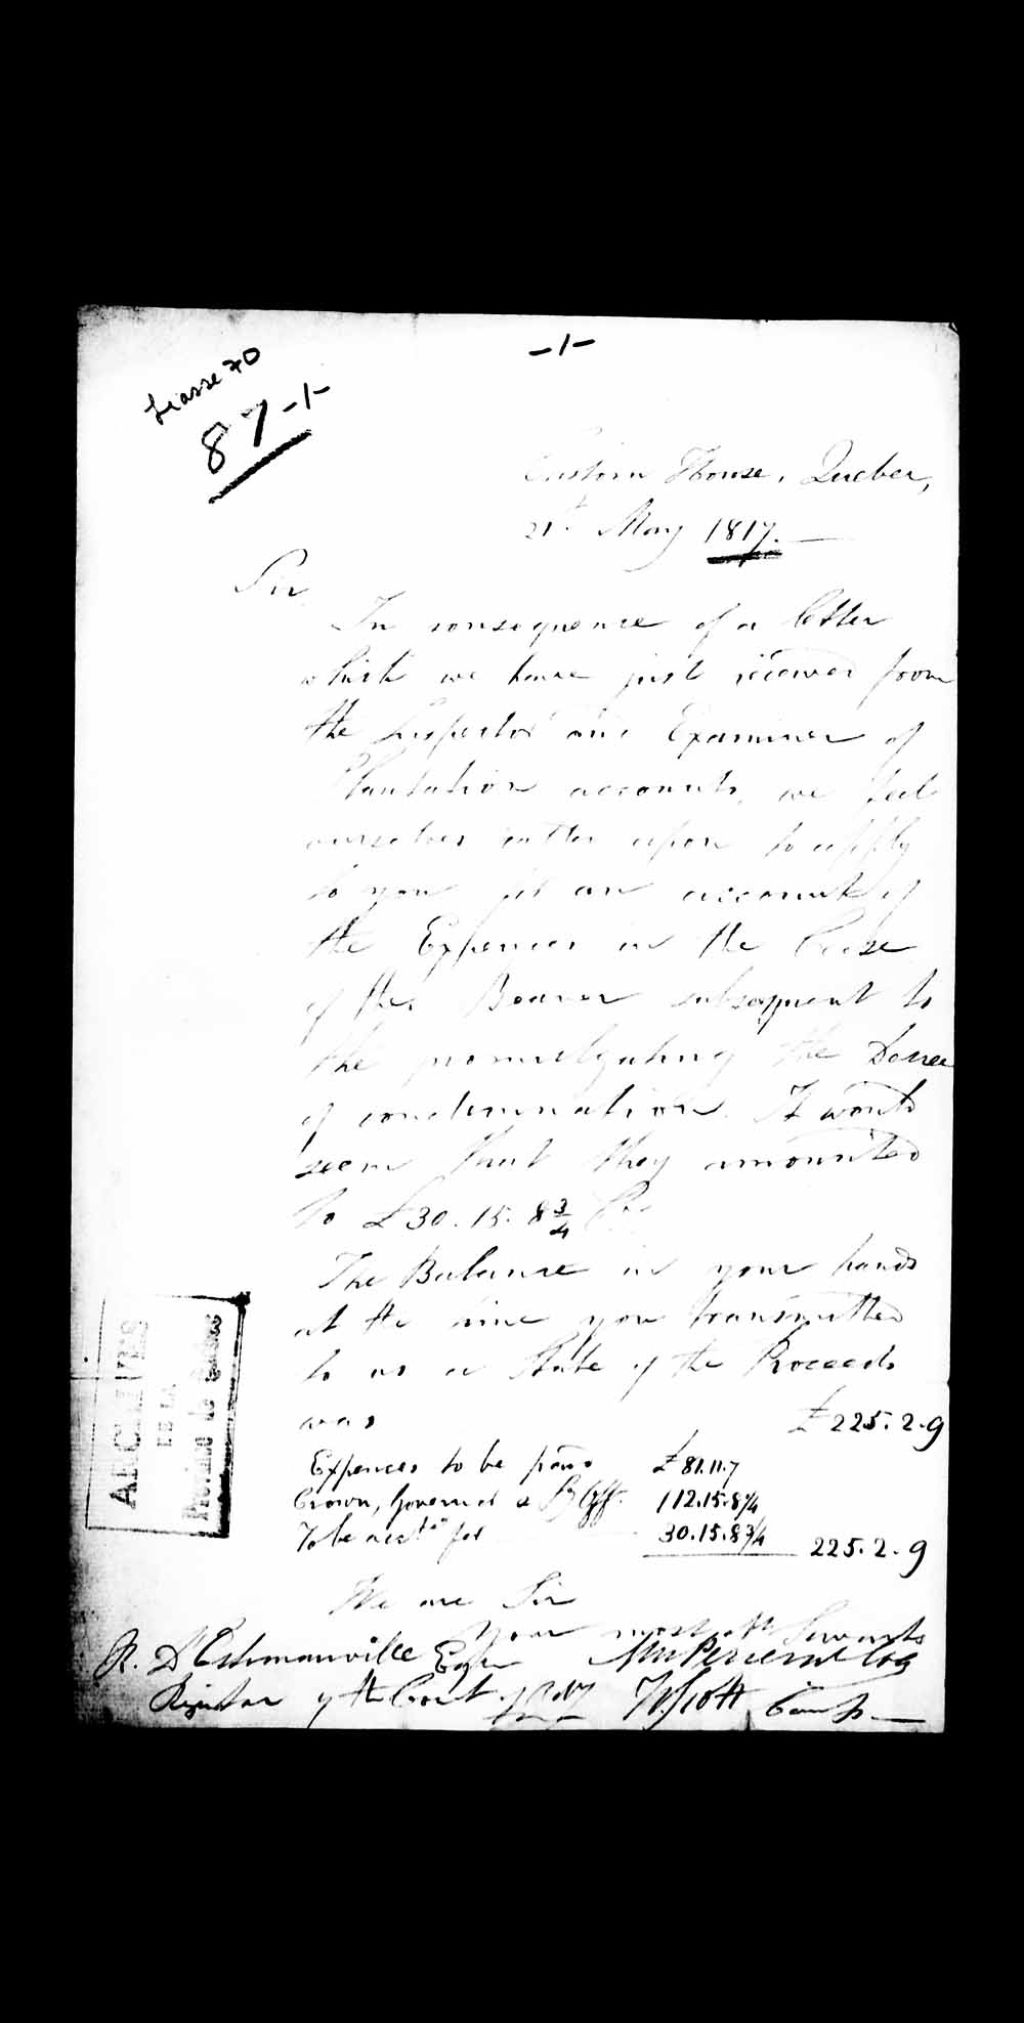 -1-
Liasse 70
87-1-
Custom House, Quebec,
21st May 1817.
Sir
In consequence of a letter
which we have just received from
the Inspector and Examiner of
Plantation accounts, we feel
ourselves called upon to apply
to you for an account of
the Expences in the Case
of the Beaver subsequent to
the promulgating the Decree
of condemnation. It would
seem that they amounted
to £30.15.8 3/4
The Balance in your hands
at the time you transmitted
to us a State of the Proceeds
was £225.2.9
Expences to be paid £81.11.7
Crown, Governor & 112.15.8 1/4
To be acctd for 30.15.8 3/4 225.2.9
We are Sir
Your most Servants
R. D'Estimauville Esqr MHPerceval Col
Register of the Court of TScott Comp
ARCHIVES
DE LA
Province de Québec